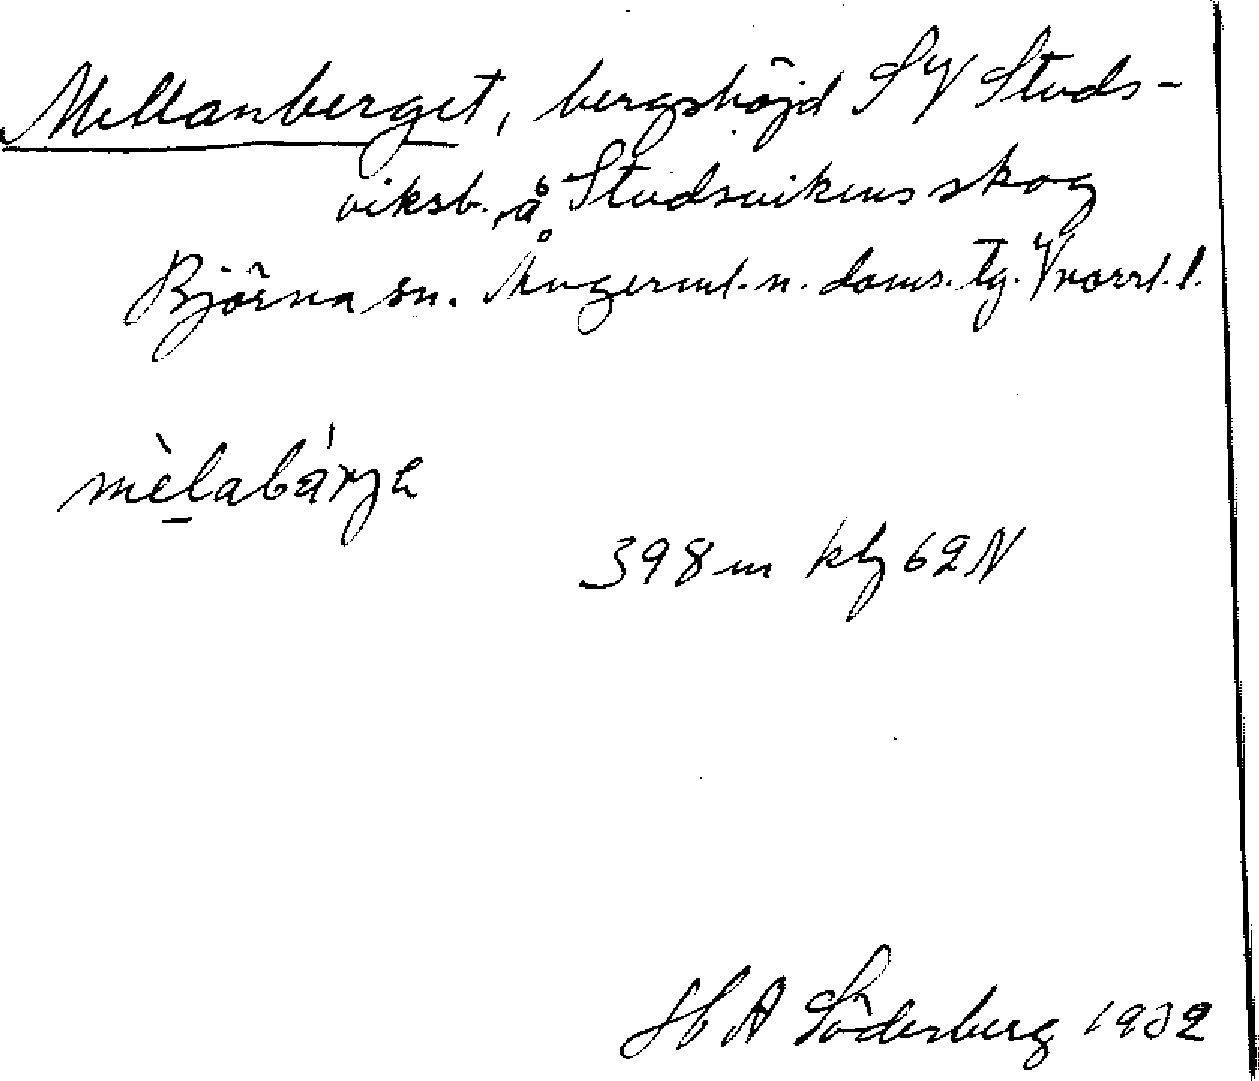 Mellanberget, bergshöjd SV Studs-
viksb. å Studsvikens skog
Björna sn. Ångerml. n. doms. tg. Vnorrl. l.
mèlabárja
398 m kbl 62 N
H A Söderberg 1932